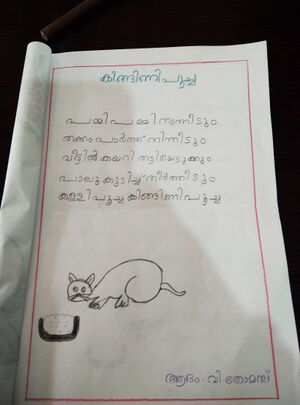 കിങ്ങിണിപൂച്ച
പമ്മി പമ്മി നടന്നീടും
തക്കം പാർത്ത് നിന്നീടും
വീട്ടിൻ കയറി തട്ടിയെടുക്കും
പാലു കുടിച്ച് തീർത്തീടും
കള്ളിപൂച്ച കിങ്ങിണിപൂച്ച
ആദം . വി തോമസ്